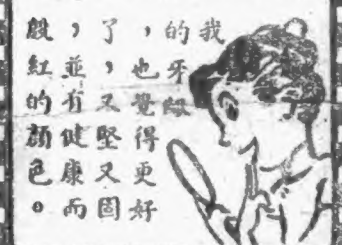 我
的牙齦
，也覺得更好
了，又堅又固
，並有健康而
殷紅的顏色。